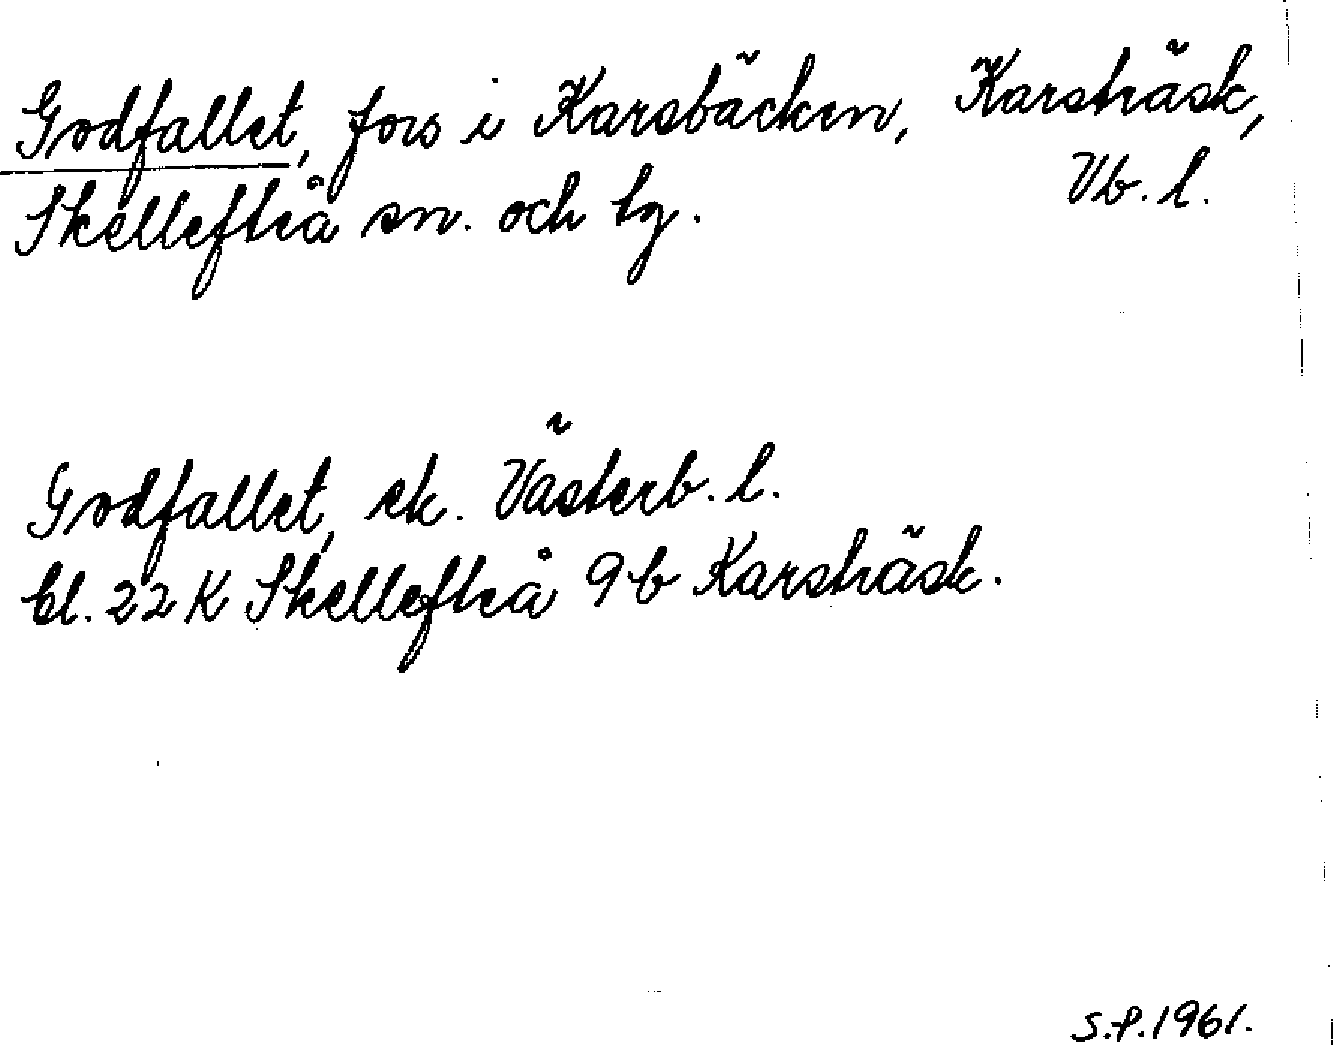 Godfallet, fors i Karsbäcken, Karsträsk,
Skellefteå sn. och tg. Vb. l.
Godfallet, ek. Västerb. l.
bl. 22 K Skellefteå 9 b Karsträsk.
S.P. 1961.